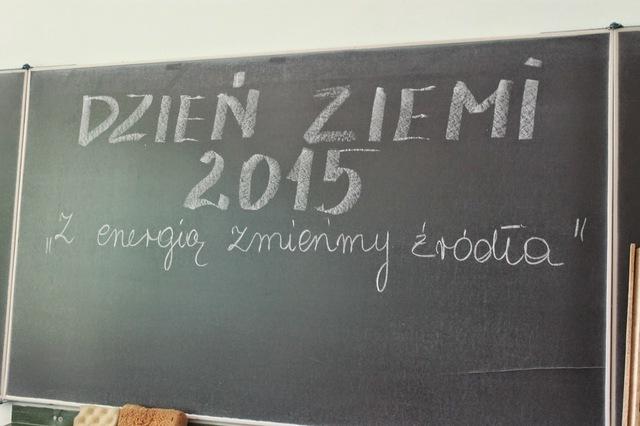 DZIEŃ ZIEMI
2015
„Z energią zmieńmy źródła"